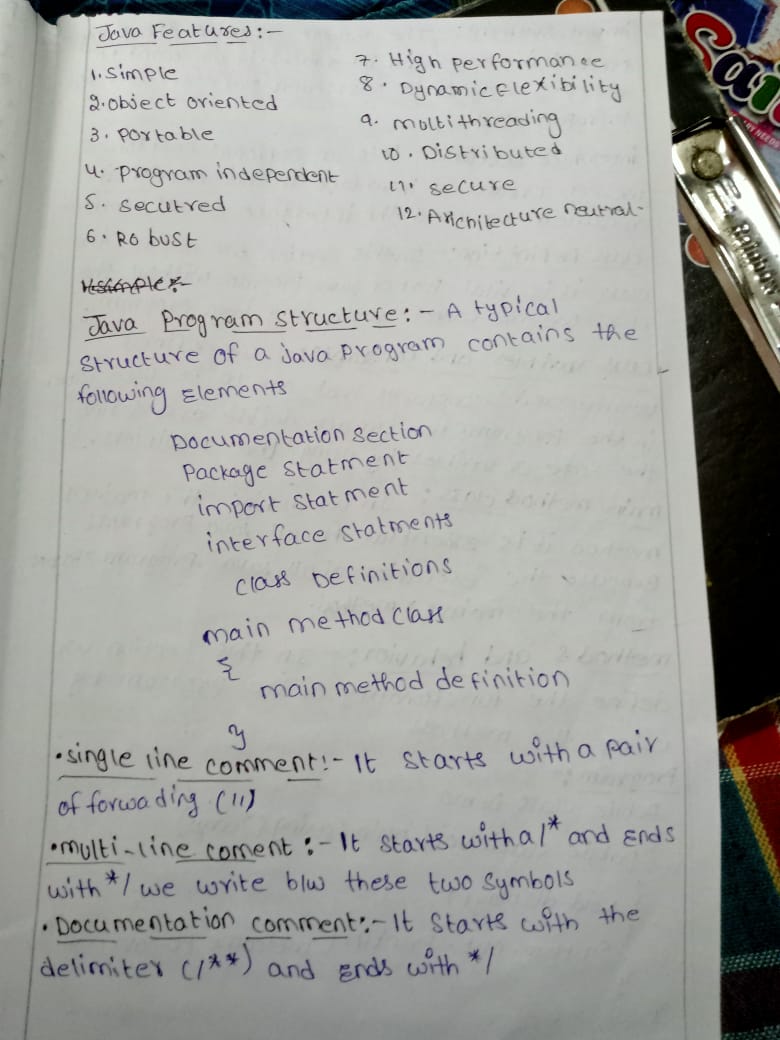 Java Features:-
1. Simple
2. object oriented
3. portable
4. program independent
5. secutred
6. Robust
7. High performance
8. Dynamic flexibility
9. multithreading
10. Distributed
11. secure
12. Architecture neutral-
Java Program structure:- A typical
structure of a java program contains the
following Elements
Documentation Section
Package Statment
import Statment
interface Statments
class Definitions
main method class
{
main method definition
}
•single line comment:- It starts with a pair
of forwading (//)
•multi-line coment:- It starts with a /* and Ends
with */ we write b/w these two symbols
•Documentation comment:- It Starts with the
delimiter (/**) and Ends with */